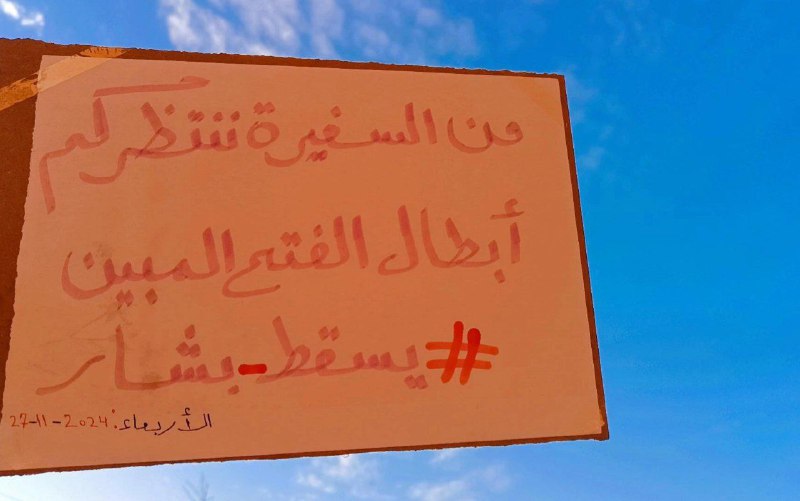 من السفيرة ننتظركم
أبطال الفتح المبين
#يسقط-بشار
الأربعاء: 27-11-2024